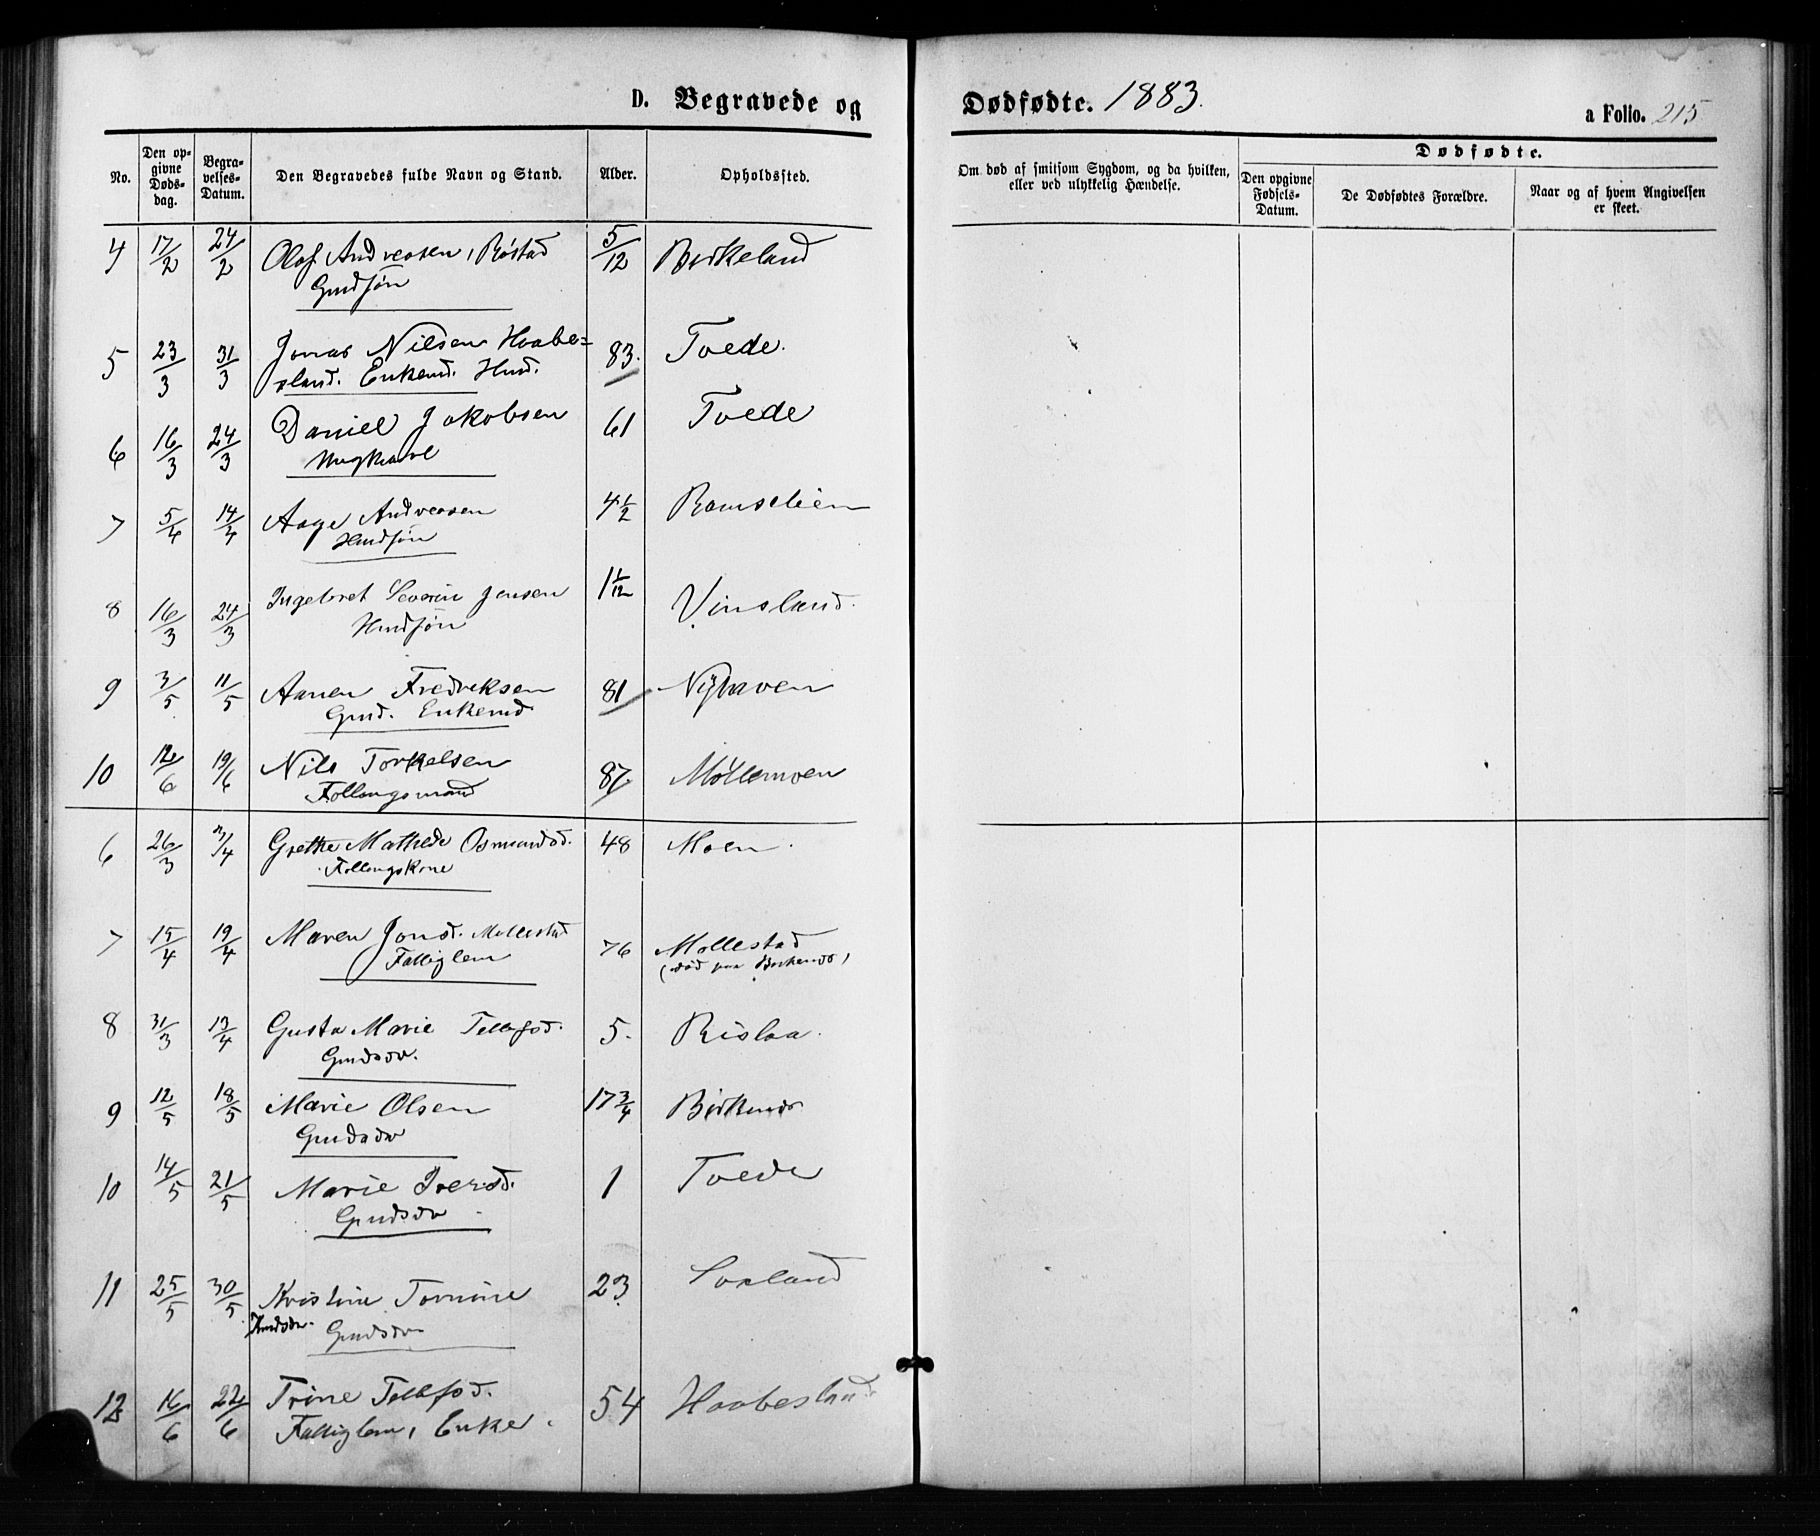 D. Begravede og
Dødfødte. 1883.
a Folio. 215
No.
Den opgivne Dødsdag.
Begravelses-Datum.
Den Begravedes fulde Navn og Stand.
Alder.
Opholdssted.
Om død af smitsom Sygdom, og da hvilken, eller ved ulykkelig Hændelse.
Dødfødte.
Den opgivne Fødsels-Datum.
De Dødfødtes Forældre.
Naar og af hvem Angivelsen er skeet.
4 17/2 24/2 Olaf Andreasen, Røstad 5/12 Birkeland
Gmdsøn
5 23/3 31/3 Jonas Nilsen Haabe= 83. Tvede.
sland. Enkemd. Hmd.
6 16/3 24/3 Daniel Jakobsen 61 Tvede
Ungkarl
7 5/4 14/4 Aage Andreasen 4 1/2 Ramseleien
Hmdsøn
8 16/3 24/3 Ingebret Severin Jensen 1 1/12 Vinsland.
Hmdsøn
9 3/5 11/5 Aanen Fredriksen 81 Nÿhaven
Gmd. Enkemd
10 12/6 19/6 Nils Torkelsen 87 Möllemoen
Follaugsmand
6 26/3 3/4 Grethe Mathilde Osmundsd. 48 Moen.
Follaugskone
7 15/4 19/4 Maren Jonsd. Mollestad 76 Mollestad
Fattiglem (død paa Birkenes)
8 31/3 13/4 Gusta Marie Tellefsd. 5. Rislaa.
Gmdsdr.
9 12/5 18/5 Marie Olsen 17 3/4 Birkenes
Gmdsdr
10 14/5 21/5 Marie Iversd. 1 Tvede
Gmdsdr
11 25/5 30/5 Kristine Tomine 23 Soxland
Knudsdr. Gmdsdr
12 16/6 22/6 Trine Tellefsd. 54 Haabesland
Fattiglem, Enke.